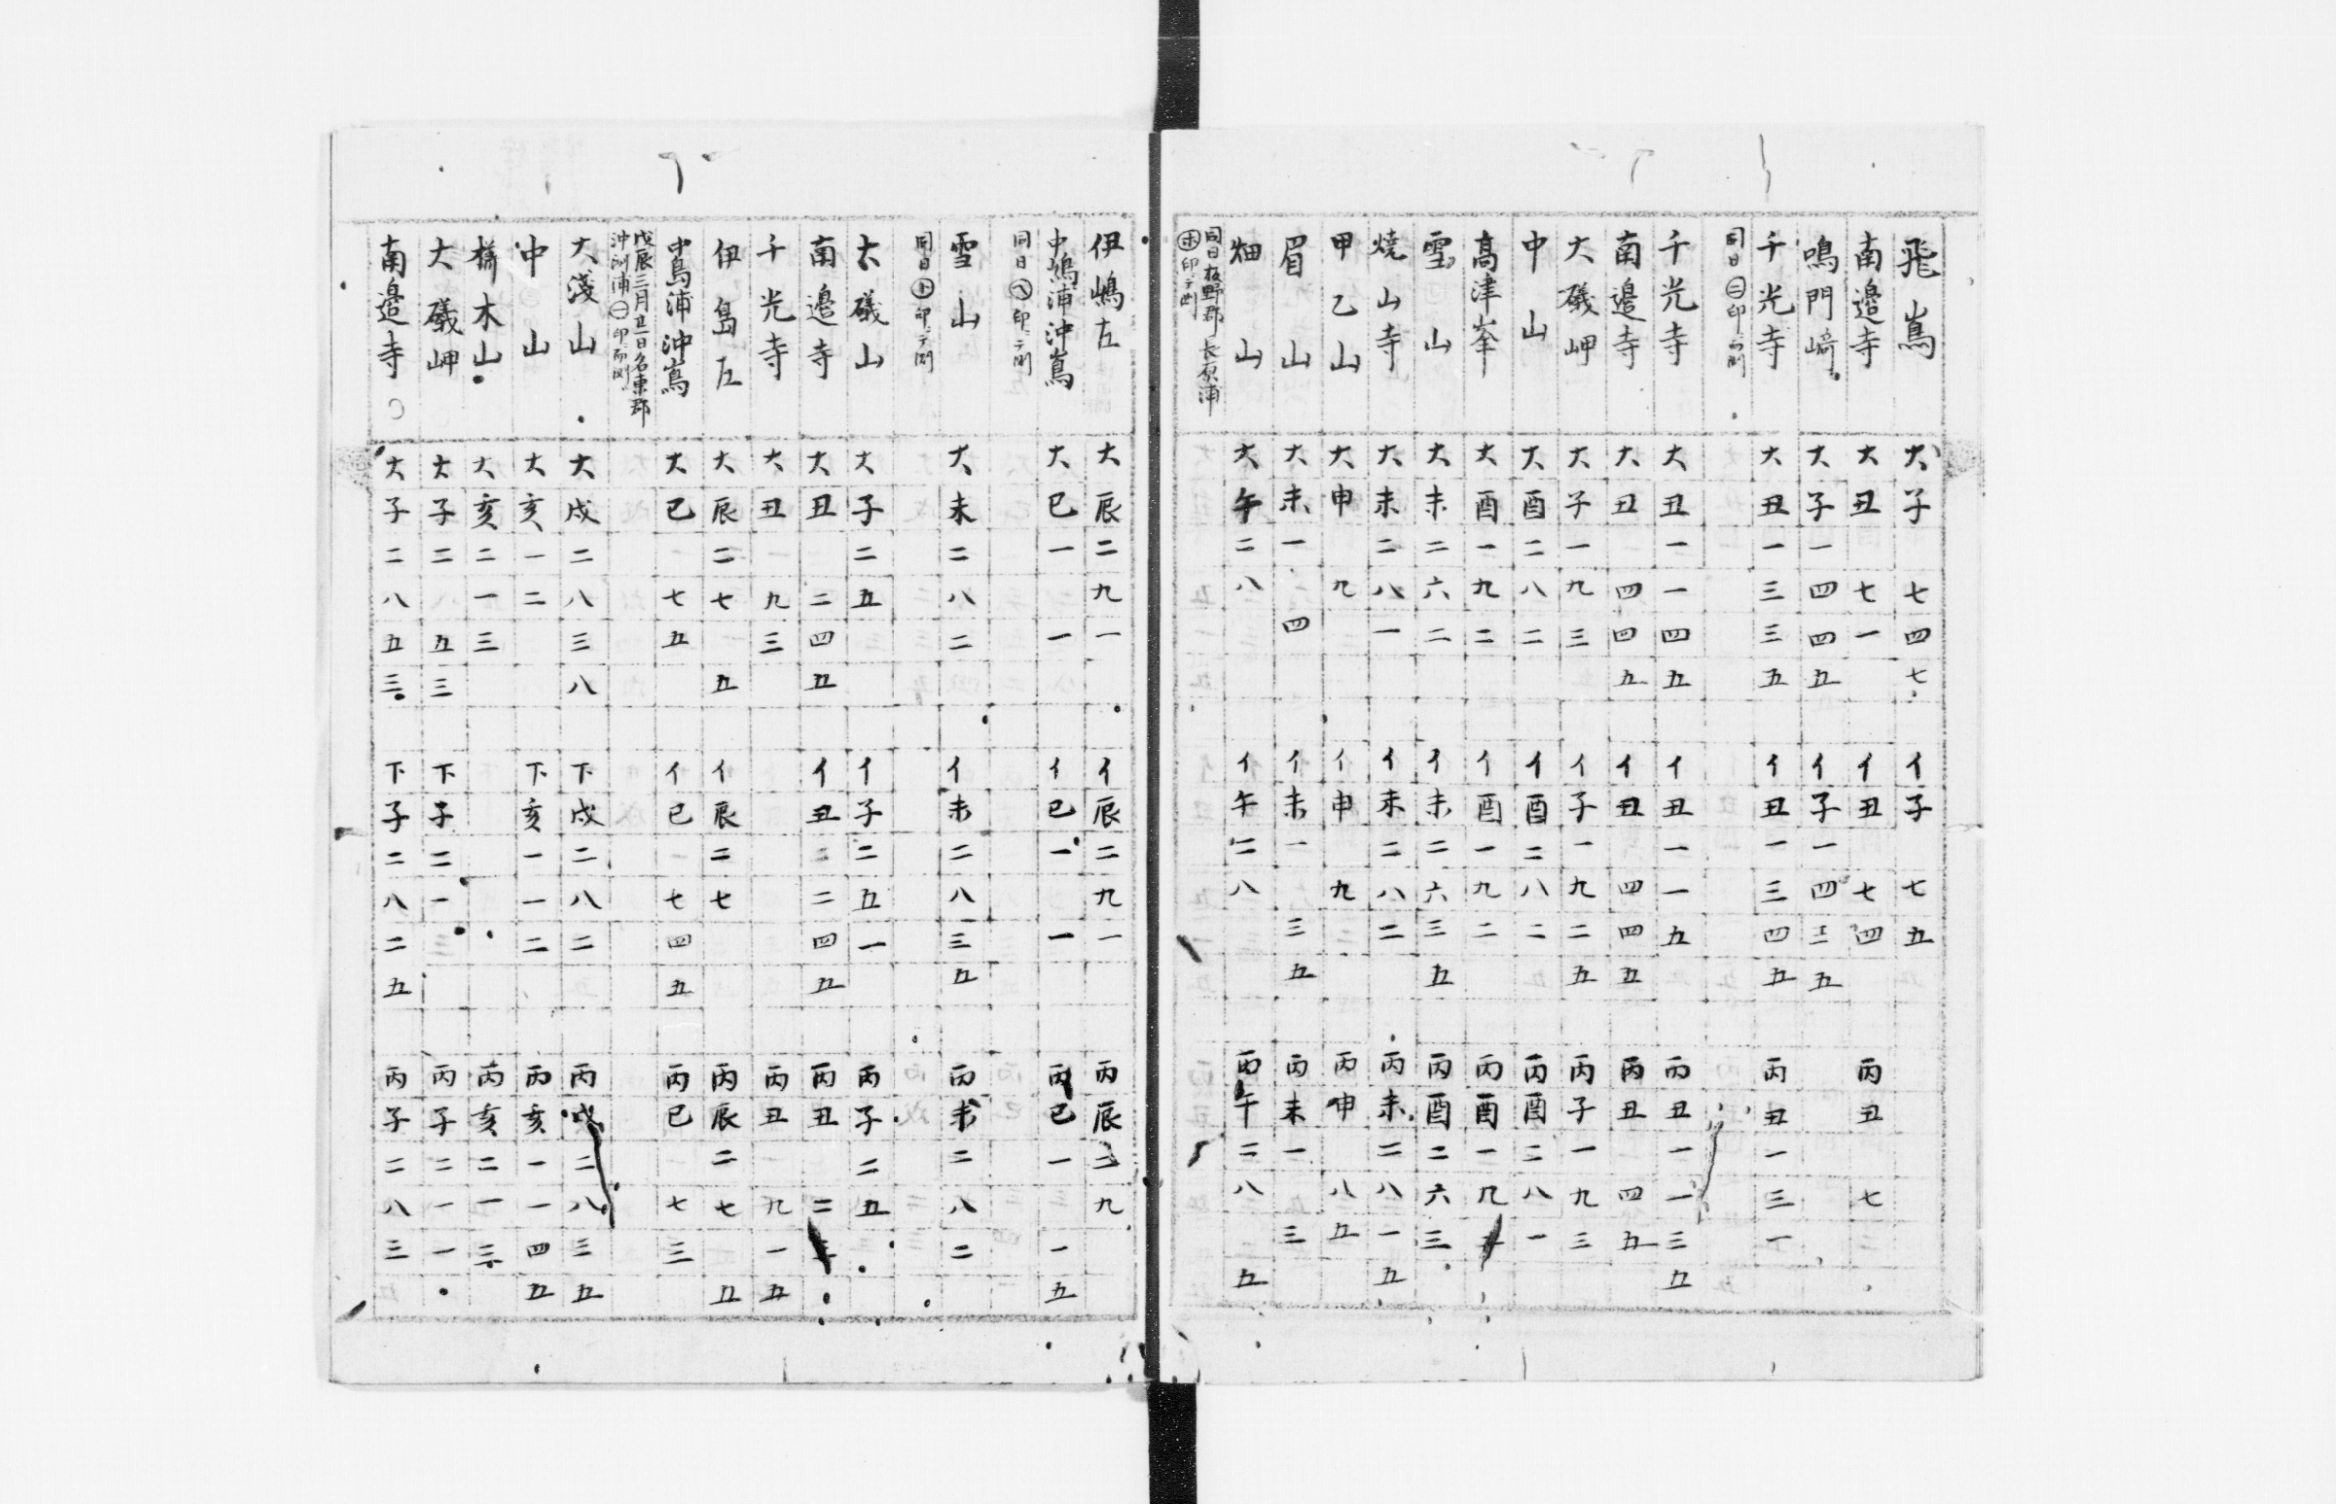 飛嶌 大子 七四七 イ子 七五
南邉寺 大丑 七一 イ丑 七四 丙丑 七
鳴門﨑 大子一四四五 イ子一四三五
千光寺 大丑一三三五 イ丑一三四五 丙丑一三一
同日㊁印ニ而測
千光寺 大丑一一四五 イ丑一一五 丙丑一一三五
南邉寺 大丑 四四五 イ丑 四四五 丙丑 四五
大礒岬 大子一九三 イ子一九二五 丙子一九三
中山 大酉二八二 イ酉二八二 丙酉二八一
高津峯 大酉一九二 イ酉一九二 丙酉一九
雪山 大未二六二 イ未二六三五 丙酉二六三
燒山寺 大未二八一 イ未二八二 丙未二八一五
甲乙山 大申 九 イ申 九 丙申 八五
眉山 大未一 四 イ未一 三五 丙未一 三
畑山 大午二八 イ午二八 丙午二八 五
同日板野郡長原浦
㋭印ニ而測
伊嶋左 大辰二九一 イ辰二九一 丙辰二九
中嶋浦沖嶌 大巳一 一 イ巳一 一 丙巳一 一五
同日㋬印ニ而測
雪山 大未二八二 イ未二八三五 丙未二八二
同日㋣印ニ而測
大礒山 大子二五 イ子二五一 丙子二五
南邉寺 大丑 二四五 イ丑 二四五 丙丑 二
千光寺 大丑 九三 丙丑 九一五
伊島左 大辰二七 五 イ辰二七 丙辰二七 五
中島浦沖嶌 大巳 七五 イ巳 七四五 丙巳 七三
戊辰三月廿一日名東郡
沖洲浦㊀印而測
大淺山 大戌二八三八 下戌二八二 丙戌二八三五
中山 大亥一二 下亥一一二 丙亥一一四五
橋木山 大亥二一三 丙亥二一三
大礒岬 大子二 五三 下子二一 丙子二一一
南邉寺 大子二八五三 下子二八二五 丙子二八三